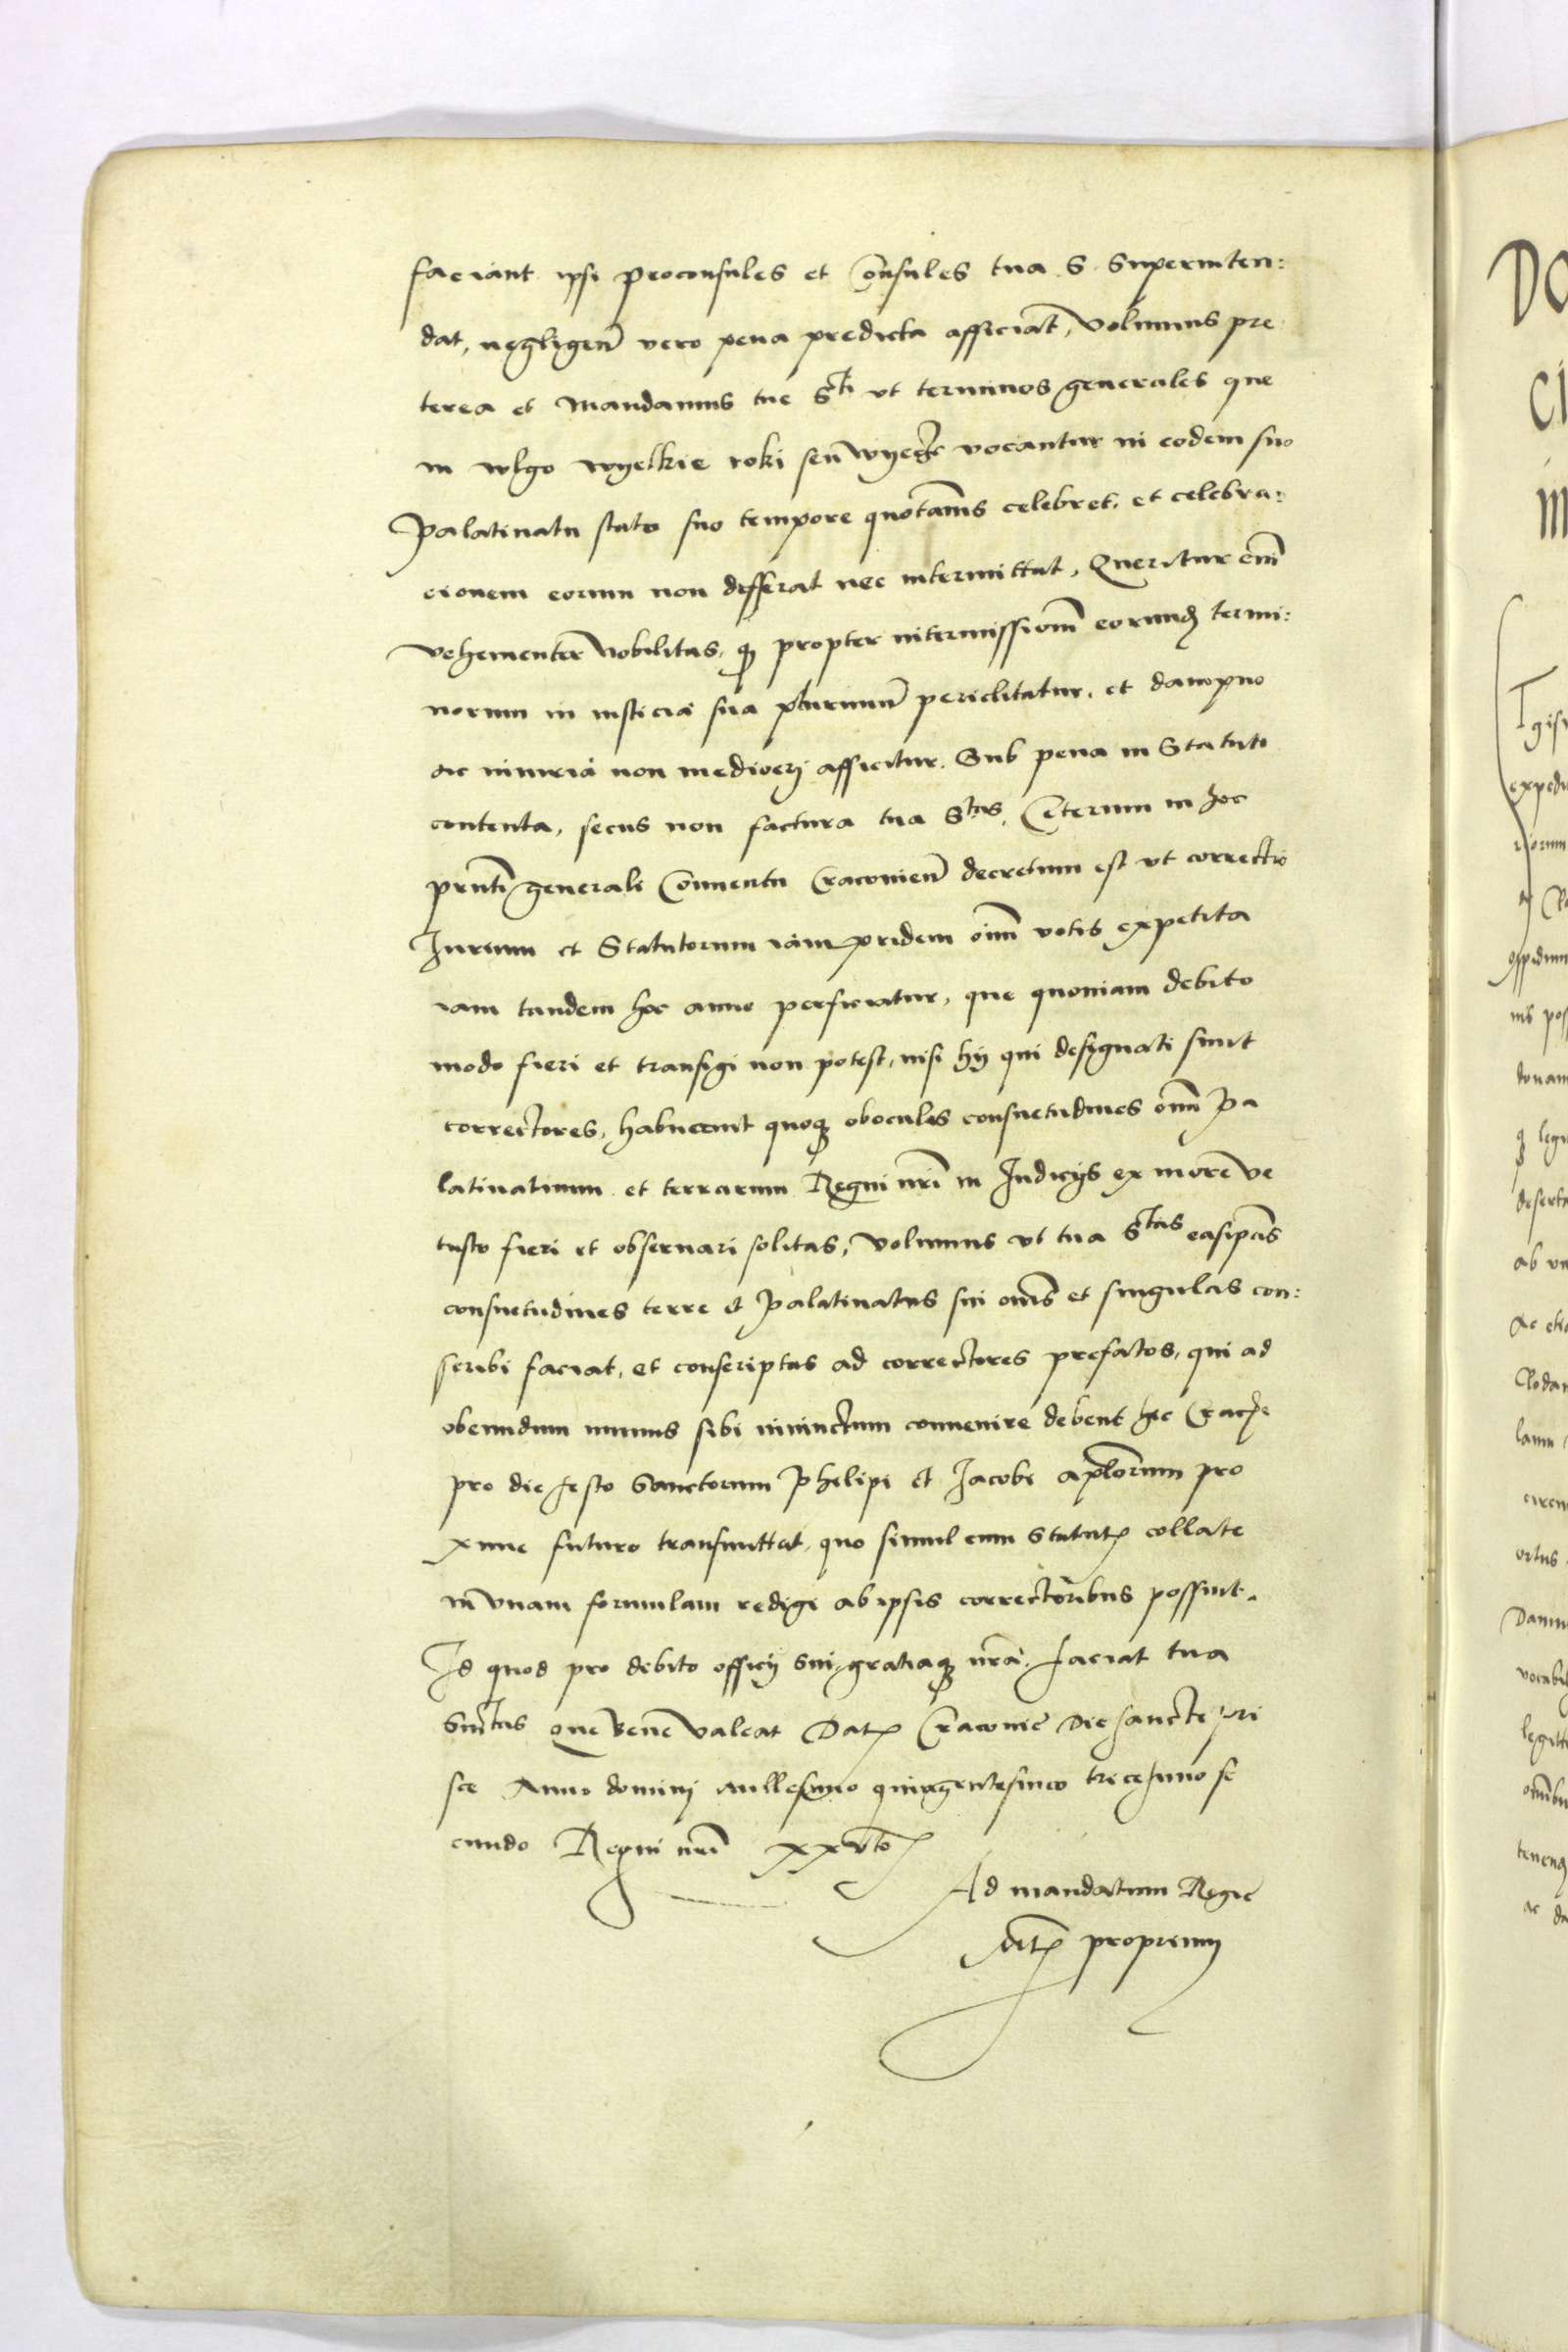 faciant ipsi proconsules et Consules tua S Superinten:
dat, negligen̄ vero pena predicta afficiat, Volumus pre
terea et Mandamus tue Sti vt terminos generales que
in wlgo wyelkie roki seu wyecze vocantur in eodem suo
Palatinatu stato suo tempore quotannis celebret, et celebra:
cionem eorum non differat nec intermittat, Queritur em̄
vehementer Nobilitas, qz propter intermissionem̄ eorundz termi:
norum in iusticia sua plurimum̄ periclitatur, et dampno
ac iniuria non mediocrj afficitur. Sub pena in Statuto
contenta, secus non factura tua Stas, Ceterum in hoc
prnti generali Conuentu Cracouien̄ decretum est vt correctio
Iurium et Statutorum iam pridem oīm votis expetita
iam tandem hoc anno perficiatur, que quoniam debito
modo fieri et transigi non potest, nisi hij qui designati sunt
correctores, habuerint quoqz obocules consuetudines om̄ Pa
latinatuum et terrarum Regni nrī in Iudicijs ex more ve
tusto fieri et obseruari solitas, Volumus vt tua Stas easipās
consuetudines terre et Palatinatus sui om̄s et singulas con:
scribi faciat, et conscriptas ad correctores prefatos, qui ad
obeundum munus sibi iniunctum conuenire debent huc Crac
pro die festo Sanctorum Philipi et Iacobi apl̄orum pro
xime futuro transmittat, quo simul cum Statut collate
in vnam formulam redigi ab ipsis correctoribus possint.
Id quod pro debito officij sui, gratiaqz nrā faciat tua
Sin̄tas que bene valeat Dat Cracouie Die sancte pri
sce Anno dominj millesimo quingentesimo tricesimo se
cundo Regni nrī xxvto
Ad mandatum Regie
Mt proprium